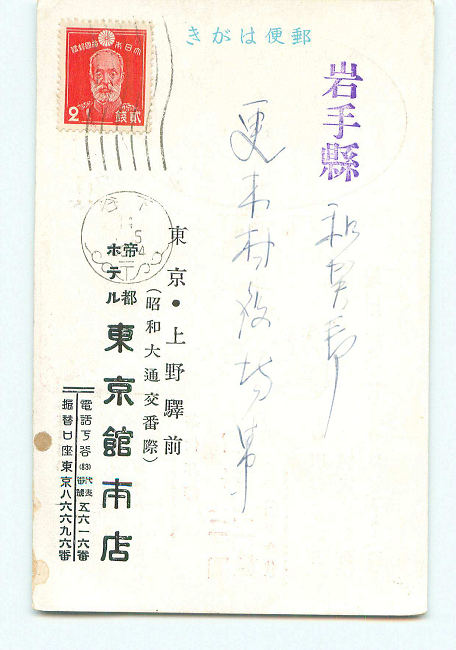 きがは便郵
岩手縣
和賀郡
更木村役場
東京・上野驛前
(昭和大通交番際)
帝都
ホテル
東京館本店
電話下谷(83)代表番號五六一六番
振替口座東京八六六九六番
大日本帝國郵便
2
貳錢